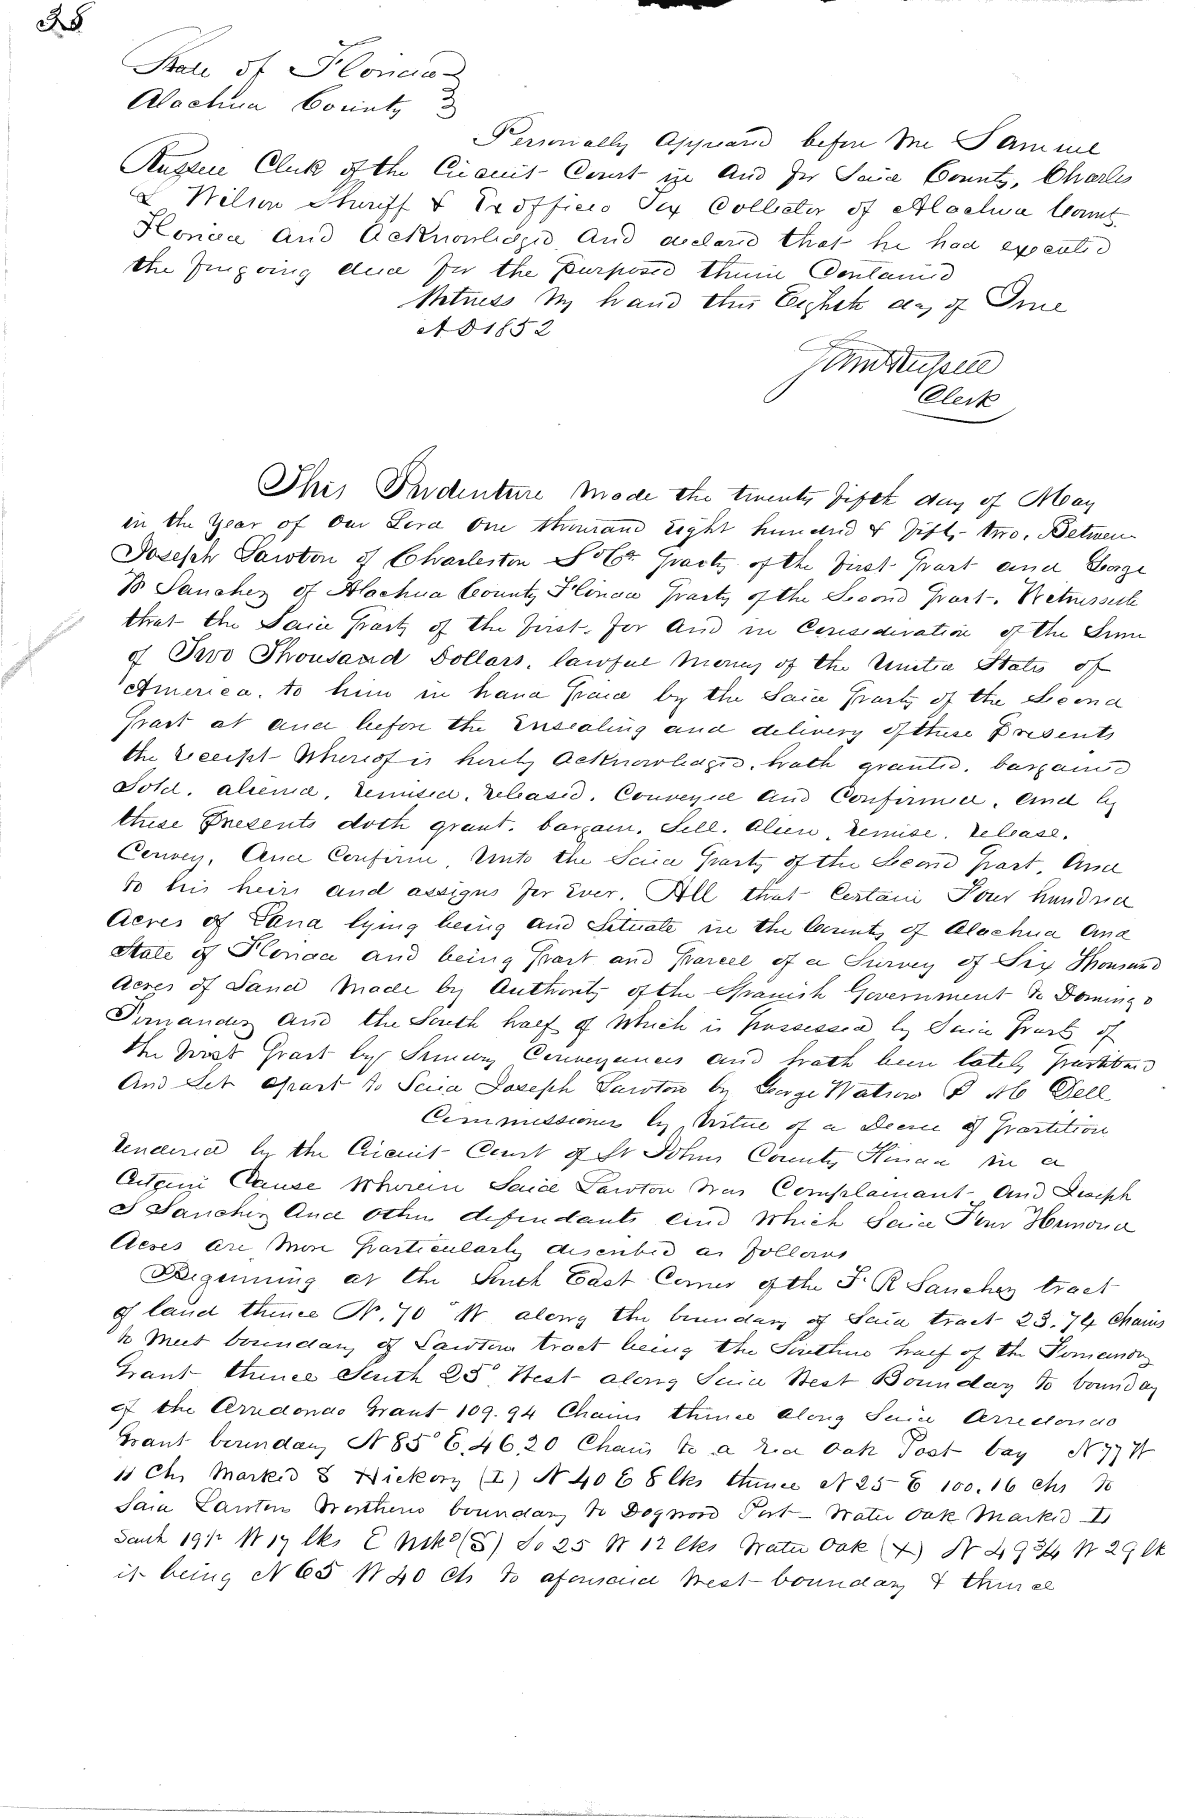 38
State of Florida
Alachua County
Personally appeared before me Samuel
Russell Clerk of the Circuit Court in and for Said County, Charles
L Wilson Sheriff & Exofficio Tax Collector of Alachua County
Florida and acknowledged and declared that he had executed
the foregoing deed for the purposes therein Contained
Witness my hand this Eighth day of June
AD 1852
Saml Russell
Clerk
This Indenture made the twenty fifth day of May
in the Year of our Lord one thousand eight hundred & fifty-two. Between
Joseph Lawton of Charleston So Ca Party of the first Part and George
Sanchez of Alachua County Florida Party of the Second Part. Witnesseth
that the Said Party of the first. for and in Consideration of the Sum
of Two Thousand Dollars. lawful money of the United States of
America. to him in hand Paid by the Said Party of the Second
Part at and before the Ensealing and delivery of these Presents
the receipt Whereof is hereby acknowledged. hath granted. bargained
Sold. aliened. remised. released. Conveyed and Confirmed. and by
these Presents doth grant. bargain. Sell. alien. remise. release.
Convey. And Confirm. Unto the Said Party of the Second Part. And
to his heirs and assigns for Ever. All that Certain Four hundred
Acres of Land lying being and Situate in the County of Alachua and
State of Florida and being Part and Parcel of a Survey of Six Thousand
Acres of Land made by Authority of the Spanish Government to Domingo
Fernandez and the South half of which is Possessed by Said Party of
the first Part by Conveyances and hath been lately Partitioned
And Set apart to Said Joseph Lawton by George Watson Dell
Commissioners by Virtue of a Decree of Partition
rendered by the Circuit Court of St Johns County Florida in a
Certain Cause Wherein Said Lawton was Complainant and Joseph
S Sanchez And other defendants and which Said Four Hundred
Acres are more Particularly described as follows
Beginning at the South East Corner of the F. R Sanchez tract
of land thence N. 70° W along the boundary of Said tract 23.74 Chains
to West boundary of Lawtons tract being the Southern half of the Fernandez
Grant thence South 25° West along Said West Boundary to boundary
of the Arredondo Grant 109.94 Chains thence along Said Arredondo
Grant boundary N 85° E. 46.20 Chains to a red oak Post bay N 77 W
11 Chs Marked S Hickory (I) N 40 E 8 lks thence N 25 E 100.16 chs to
Said Lawtons Northern boundary to Dogwood Post - Water oak Marked I
South 19½ W 17 lks (S) So 25 W 12 lks Water Oak (X) N 49¾ W 29 lk
it being N 65 W 40 Ch to aforesaid West boundary & thence